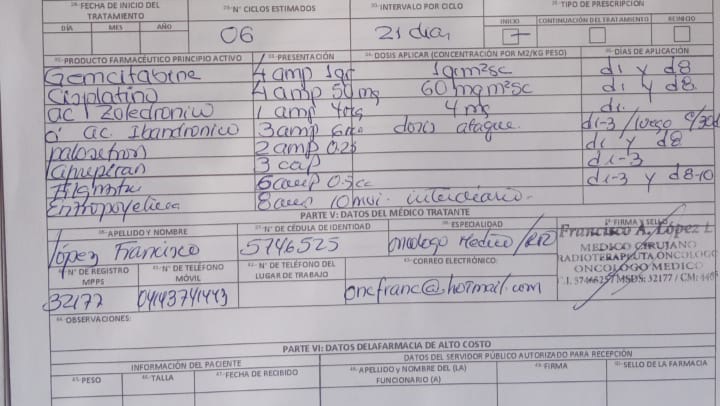 28-FECHA DE INICIO DEL TRATAMIENTO
29-N° CICLOS ESTIMADOS
30-INTERVALO POR CICLO
31-TIPO DE PRESCRIPCIÓN
DÍA MES AÑO
06
21 dias
INICIO CONTINUACIÓN DEL TRATAMIENTO REINICIO
PRODUCTO FARMACÉUTICO PRINCIPIO ACTIVO PRESENTACIÓN DOSIS APLICAR (CONCENTRACIÓN POR M2/KG PESO) DIAS DE APLICACIÓN
Gemcitabine 4 amp 1gr 1grm2sc d1 y d8
Cisplatino 4 amp 50 mg 60 mg m2sc d1 y d8
ac Zoledronico 1 amp 4mg 4 mg d1.
o' ac. Ibandronico 3 amp 6mg dosis ataque. d1-3 / luego
palosetron 2 amp 0.25 d1 y d8
3 cap d1-3
6 amp 0.5cc d1-3 y d8-10
8 amp 10 interdiario.
PARTE V: DATOS DEL MÉDICO TRATANTE
APELLIDO Y NOMBRE N° DE CÉDULA DE IDENTIDAD ESPECIALIDAD FIRMA Y SELLO
López Francisco 5746525 Oncologo Medico
Francisco A. López L
MEDICO CIRUJANO
RADIOTERAPEUTA ONCOLOGO
ONCOLOGO MEDICO
MSDS: 32177 / CM:
N° DE REGISTRO MPPS
N° DE TELÉFONO MÓVIL
N° DE TELÉFONO DEL LUGAR DE TRABAJO
CORREO ELECTRÓNICO
32177 04143741443 oncfranc@hotmail.com
OBSERVACIONES:
PARTE VI: DATOS DELAFARMACIA DE ALTO COSTO
INFORMACIÓN DEL PACIENTE
DATOS DEL SERVIDOR PÚBLICO AUTORIZADO PARA RECEPCIÓN
45-PESO 46-TALLA 47-FECHA DE RECIBIDO 48-APELLIDO y NOMBRE DEL (LA) FUNCIONARIO (A) 49-FIRMA 50-SELLO DE LA FARMACIA